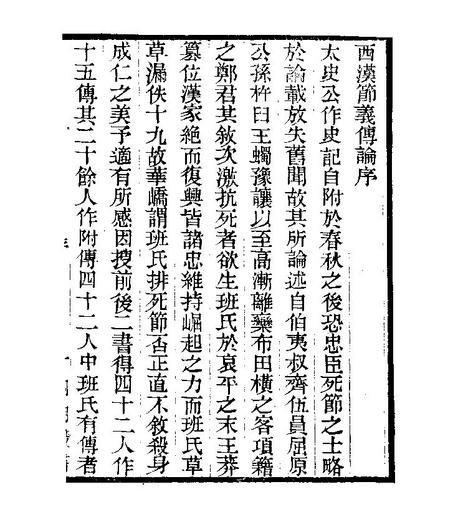 西漢節義傳論序
太史公作史記自附於春秋之後恐忠臣死節之士略
於論載放失舊聞故其所論述自伯夷叔齊伍員屈原
公孫杵臼王蠋豫讓以至高漸離欒布田橫之客項籍
之鄭君其敘次激抗死者欲生班氏於哀平之末王莽
篡位漢家絕而復興皆諸忠維持崛起之力而班氏草
草漏佚十九故華嶠謂班氏排死節否正直不敘殺身
成仁之美予適有所感因搜前後二書得四十二人作
十五傳其二十餘人作附傳四十二人中班氏有傳者